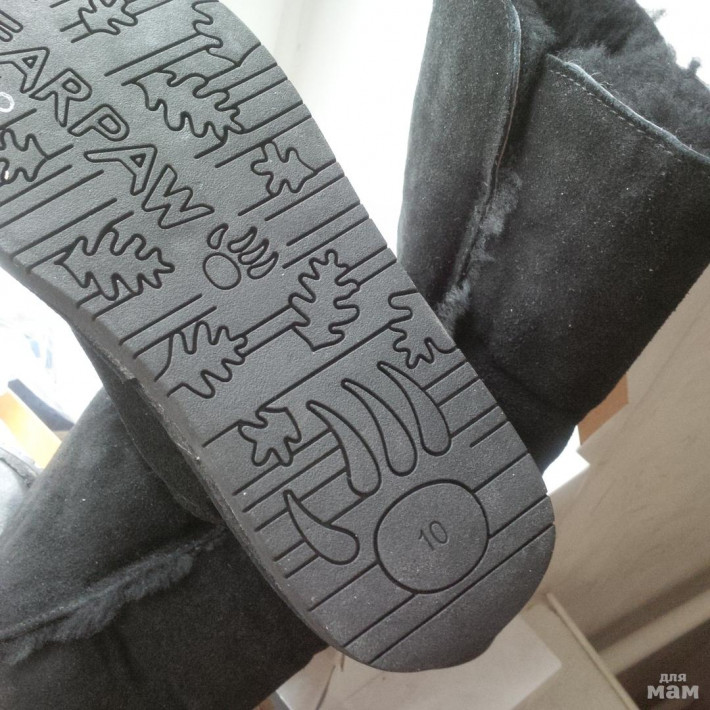 EARPAW
10
для
мам